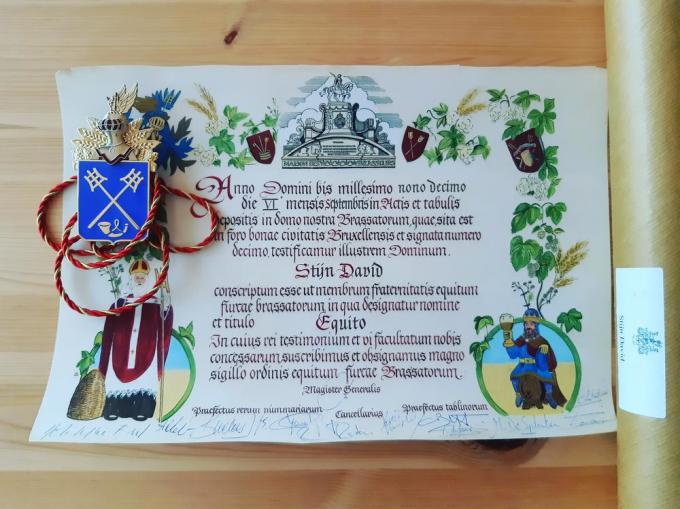 MAISON DES BRASSEURS
Anno Domini bis millesimo nono decimo
die VI mensis Septembris in Actis et tabulis
depositis in domo nostra Brassatorum, quae sita est
in foro bonae civitatis Bruxellensis et signata numero
decimo, testificamur illustrem Dominum.
Stijn David
conscriptum esse ut membrum fraternitatis equitum
furcae brassatorum, in qua designatur nomine
et titulo Equito
In cuius rei testimonium et vi facultatum nobis
concessarum, suscribimus et obsignamus magno
sigillo ordinis equitum furcae Brassatorum.
Magister Generalis
Praefectus rerum nummariarum Cancellarius Praefectus tablinorum
Stijn David